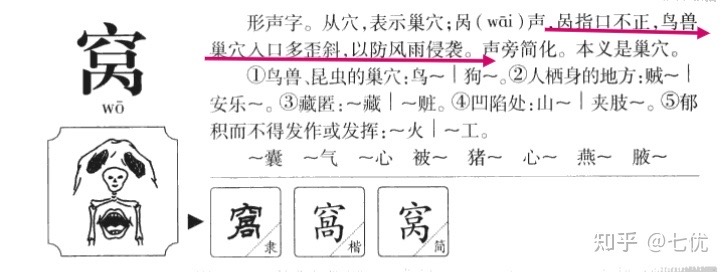 形声字。从穴，表示巢穴；呙（wāi）声，呙指口不正，鸟兽
巢穴入口多歪斜，以防风雨侵袭。声旁简化。本义是巢穴。
①鸟兽、昆虫的巢穴：鸟～｜狗～。②人栖身的地方：贼～｜
安乐～。③藏匿：～藏｜～赃。④凹陷处：山～｜夹肢～。⑤郁
积而不得发作或发挥：～火｜～工。
～囊 ～气 ～心 被～ 猪～ 心～ 燕～ 腋～
窝
wō
窩 隶
窩 楷
窝 简
知乎 @七优